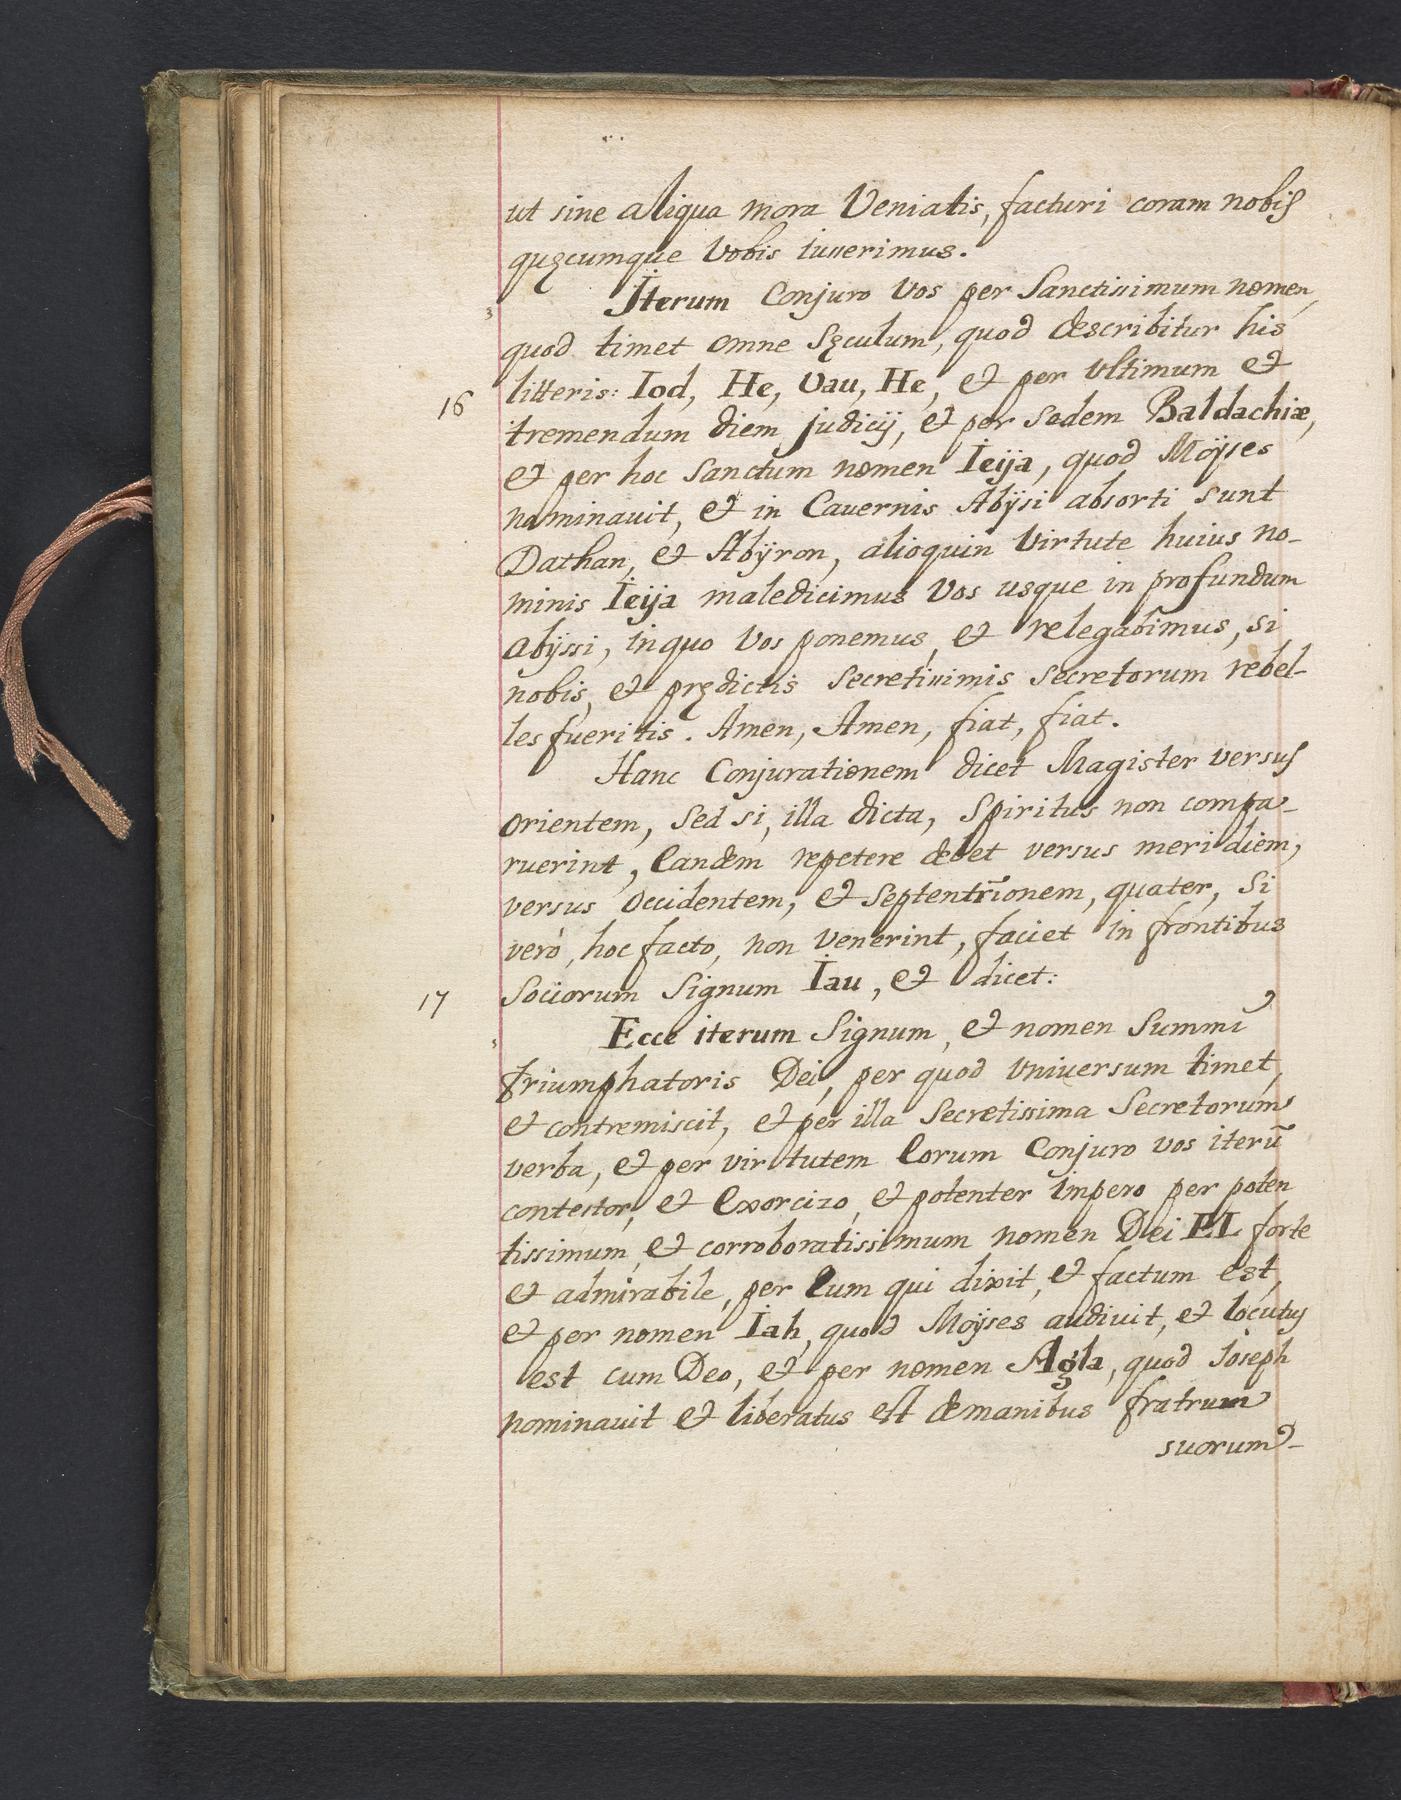 ut sine aliqua mora Veniatis, facturi coram nobis
quęcumque Vobis iuuerimus.
Iterum Conjuro Vos per Sanctissimum nomen,
quod timet omne Sęculum, quod describitur his
16 litteris: Iod, He, Vau, He, et per Vltimum et
tremendum diem judicij, et per sedem Baldachiæ,
et per hoc Sanctum nomen Ieija, quod Moÿses
nominauit, et in Cauernis Abÿsi absorti sunt
Dathan, et Abÿron, alioquin Virtute huius no-
minis Ieija maledicimus Vos usque in profundum
abÿssi, in quo Vos ponemus, et relegabimus, si
nobis, et prędictis Secretissimis Secretorum rebel-
les fueritis. Amen, Amen, fiat, fiat.
Hanc Conjurationem dicet Magister versus
orientem, Sed si, illa dicta, Spiritus non compa-
ruerint, Eandem repetere debet versus meridiem,
versus Occidentem, et Septentrionem, quater, Si
verò, hoc facto, non Venerint, faciet in frontibus
17 Sociorum Signum Iau, et dicet:
Ecce iterum Signum, et nomen Summi
triumphatoris Dei, per quod Vniuersum timet,
et contremiscit, et per illa Secretissima Secretorum
verba, et per virtutem Eorum Conjuro vos iterū
contestor, et Exorcizo, et potenter impero per poten
tissimum, et corroboratissimum nomen Dei EL forte
et admirabile, per Eum qui dixit, et factum est,
et per nomen Iah, quod Moÿses audiuit, et locutus
est cum Deo, et per nomen Agla, quod Ioseph
nominauit et liberatus est de manibus fratrum
suorum-